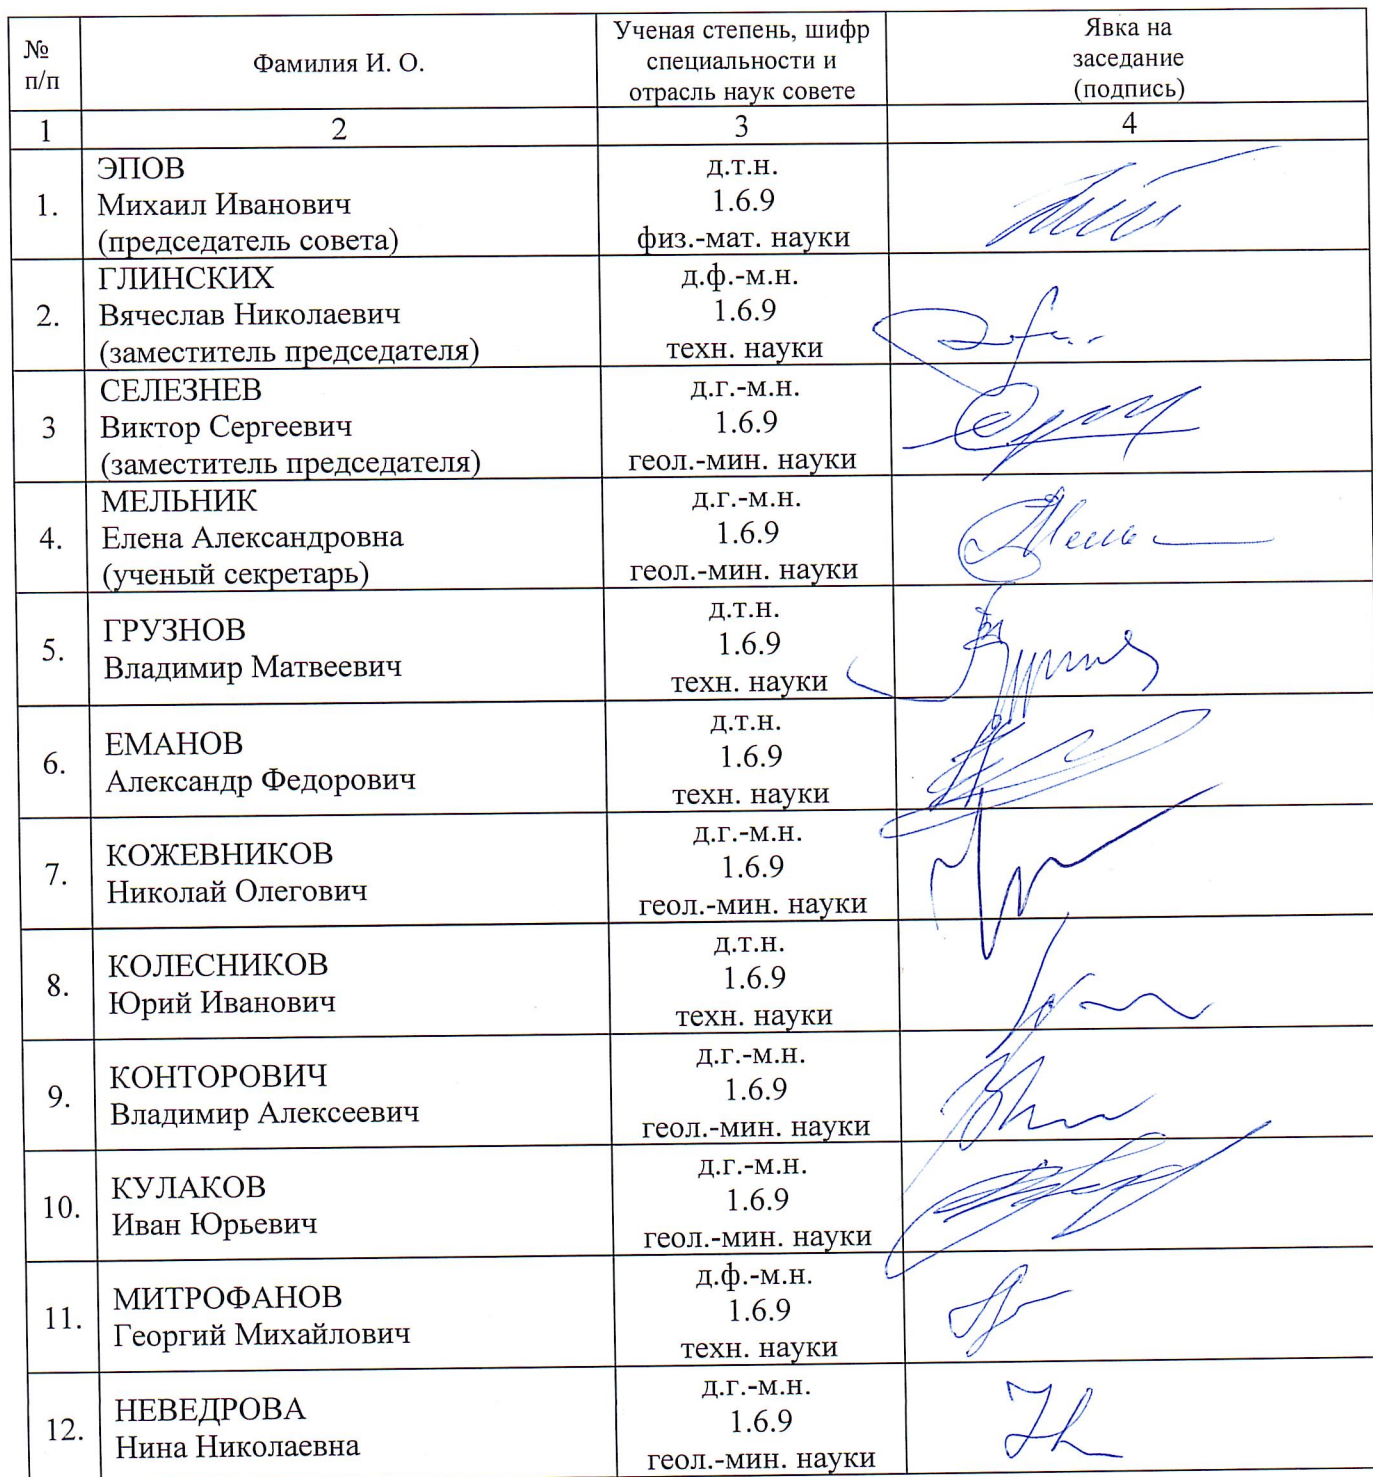 №
п/п
Фамилия И. О.
Ученая степень, шифр
специальности и
отрасль наук совете
Явка на
заседание
(подпись)
1
2
3
4
1.
ЭПОВ
Михаил Иванович
(председатель совета)
д.т.н.
1.6.9
физ.-мат. науки
2.
ГЛИНСКИХ
Вячеслав Николаевич
(заместитель председателя)
д.ф.-м.н.
1.6.9
техн. науки
3
СЕЛЕЗНЕВ
Виктор Сергеевич
(заместитель председателя)
д.г.-м.н.
1.6.9
геол.-мин. науки
4.
МЕЛЬНИК
Елена Александровна
(ученый секретарь)
д.г.-м.н.
1.6.9
геол.-мин. науки
5.
ГРУЗНОВ
Владимир Матвеевич
д.т.н.
1.6.9
техн. науки
6.
ЕМАНОВ
Александр Федорович
д.т.н.
1.6.9
техн. науки
7.
КОЖЕВНИКОВ
Николай Олегович
д.г.-м.н.
1.6.9
геол.-мин. науки
8.
КОЛЕСНИКОВ
Юрий Иванович
д.т.н.
1.6.9
техн. науки
9.
КОНТОРОВИЧ
Владимир Алексеевич
д.г.-м.н.
1.6.9
геол.-мин. науки
10.
КУЛАКОВ
Иван Юрьевич
д.г.-м.н.
1.6.9
геол.-мин. науки
11.
МИТРОФАНОВ
Георгий Михайлович
д.ф.-м.н.
1.6.9
техн. науки
12.
НЕВЕДРОВА
Нина Николаевна
д.г.-м.н.
1.6.9
геол.-мин. науки